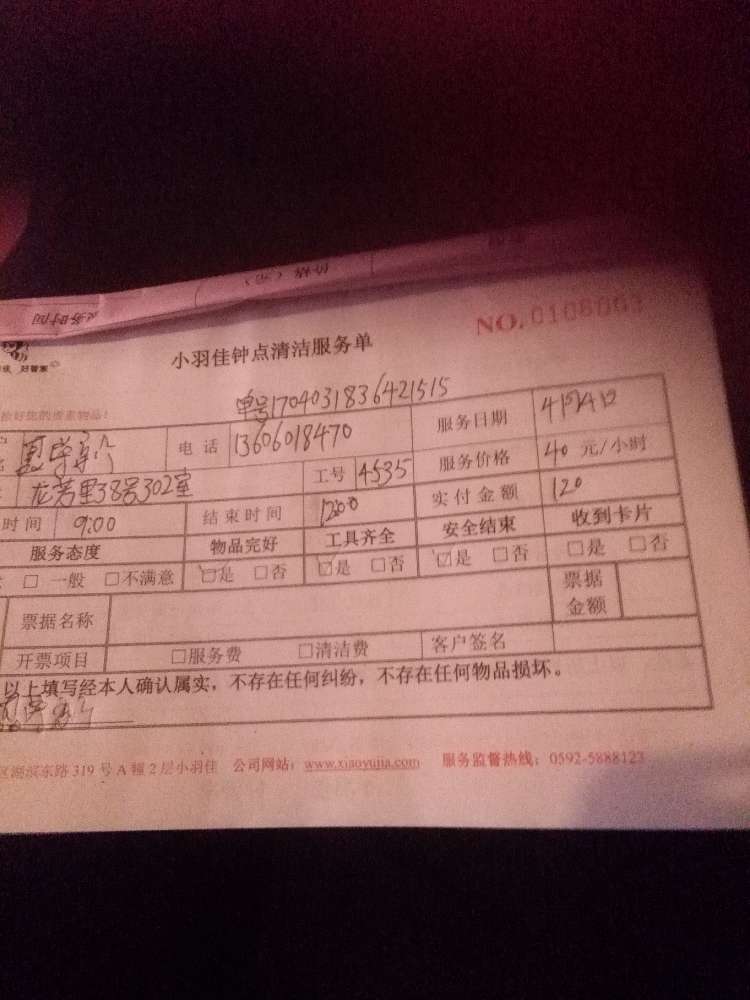 NO.0108003
小羽佳钟点清洁服务单
好管家
单号1704031836421515
电话 13606018470 服务日期 4月4日
龙芳里38号302室 工号 4535 服务价格 40 元/小时
时间 9:00 结束时间 12:00 实付金额 120
服务态度 物品完好 工具齐全 安全结束 收到卡片
□一般 □不满意 □是 □否 □是 □否 □是 □否 □是 □否
票据名称 票据金额
开票项目 □服务费 □清洁费 客户签名
以上填写经本人确认属实，不存在任何纠纷，不存在任何物品损坏。
区湖滨东路319号A幢2层小羽佳 公司网站：www.xiaoyujia.com 服务监督热线：0592-5888123